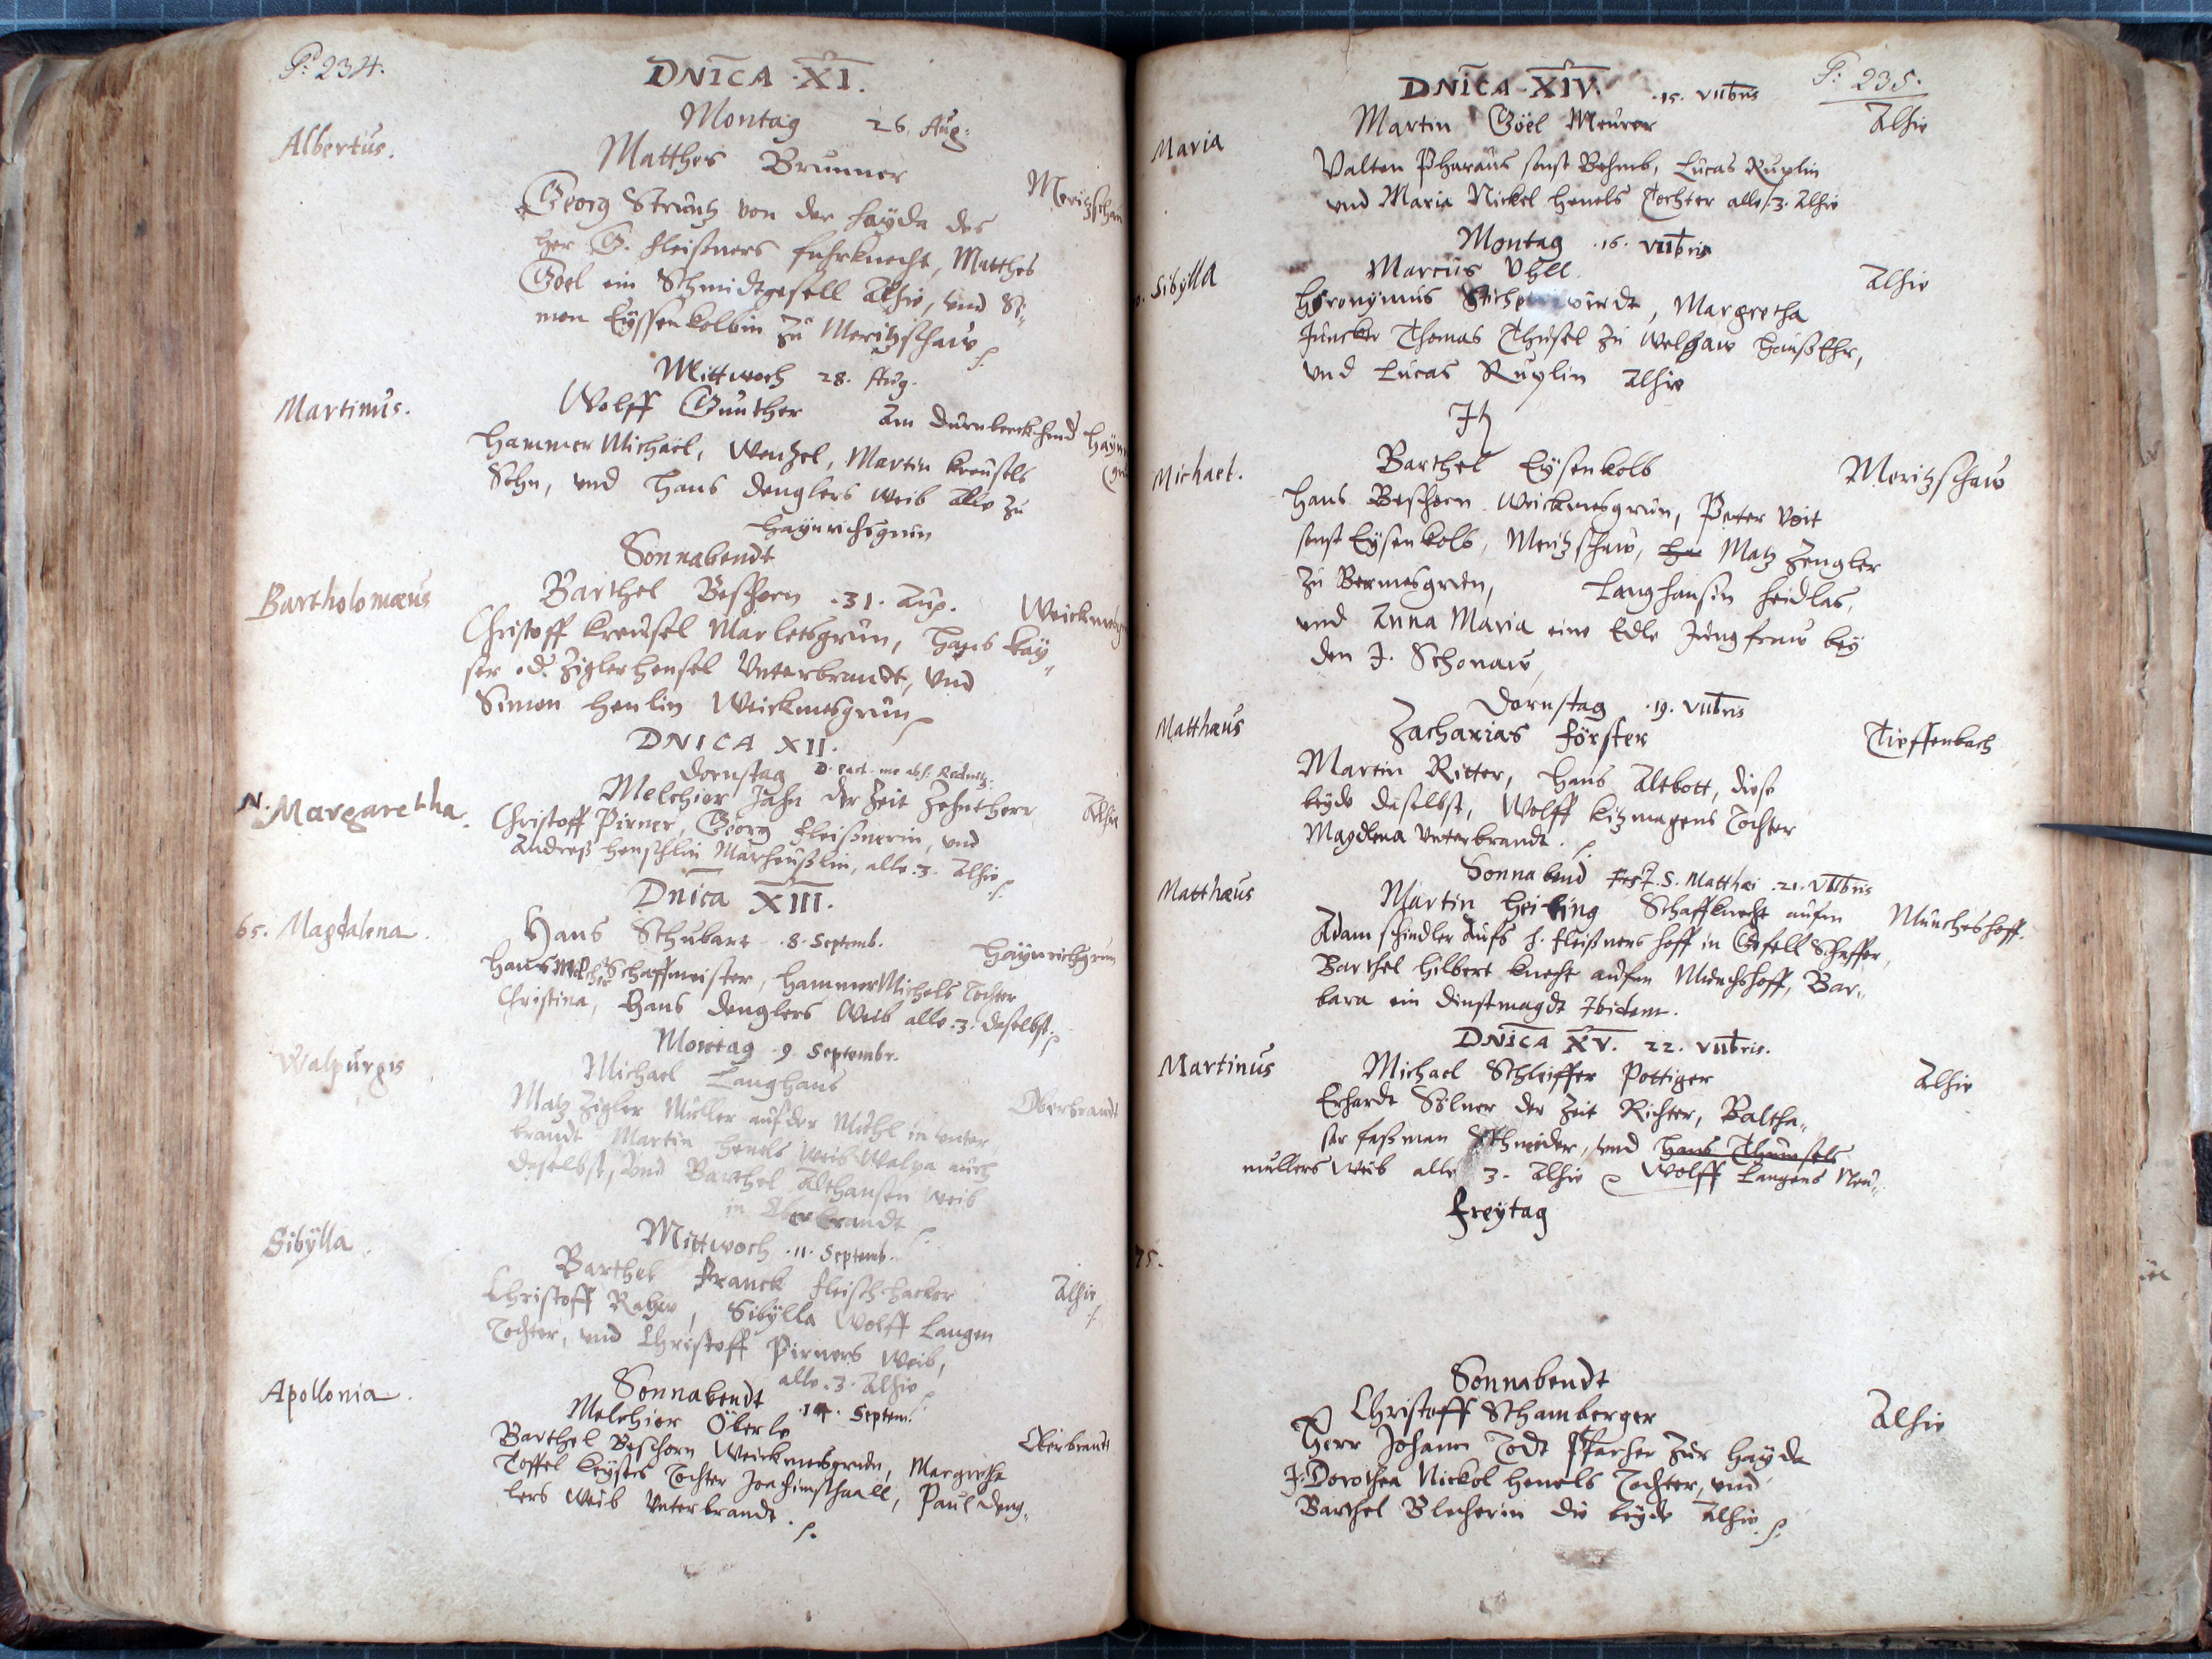 P: 234.
DNICA XI.
Montag 26. Aug:
Albertus.
Matthes Brunner
Meritzschaw
Georg Struntz von der Hayda des
Her G. Fleißners fuhrknecht, Matthes
Goel ein Schmidtgesell Alhie, und Si„
mon Eyssenkolbin zu Meritzschaw
Mittwoch 28. Aug.
Martinus.
Wolff Gunther
Hammer Michael, Wentzel, Martin Kreusels
Sohn, und Hans Denglers weib Alle zu
Haynrichsgrun
Sonnabendt
Bartholomæus
Barthel Beschorn .31. Aug.
Christoff Kreusel Marletsgrün, Hans Kay„
ser od. Ziglerhensel Unterbrandt, Und
Simon Henlin Weickmesgrun
DNICA XII.
Dornstag
N. Margaretha.
Melchier Jahn der Zeit Zehntherr
Alhie
Christoff Pirner, Georg Fleißnerin, und
Andreß Henschlin, alle .3. Alhie
Dnica XIII.
65. Magdalena.
Hans Schubart .8. Septemb.
Haynrichgrun
Hans Schaffmeister, HammerMichels Tochter
Christina, Hans Denglers Weib alle .3. daselbst.
Montag .9. Septembr.
Walpurgis
Michael Langhans
Oberbrandt
Matz Zigler Müller auf der Mühl in Unter„
brandt Martin Henels Weib Walpa auch
daselbst, und Barthel Althansen Weib
in Oberbrandt
Mittwoch .11. Septemb.
Sibÿlla
Barthel Franck fleischhacker
Alhie
Christoff, Sibÿlla Wolff Langen
Tochter, und Christoff Pirners Weib,
alle .3. Alhie
Sonnabendt .14. Septem.
Apollonia.
Melchior Öberle
Oberbrandt
Barthel Beschorn Weickmesgrun, Margretha
Toffel Keysers Tochter Joachimsthaall, Paul Deng„
lers Weib Unterbrandt.
P: 235.
DNICA XIV. .15. VIIbris
Maria
Martin Göel Meurer
Alhie
Valten Pharaus sonst Behmb, Lucas Ruplin
und Maria Nickel Henels Tochter alle .3. Alhie
Montag .16. VIIbris
Sibÿlla
Marcus Uhll
Alhie
Hÿronÿmus, Margretha
Juncker Thomas Thusel zu Welhaw Haußfhr,
und Lucas Ruplin Alhie
Michael.
Barthel Eysenkolb
Meritzschaw
Hans Beschorn Weickmesgrun, Peter Voit
sonst Eysenkolb, Meritzschaw, Matz Zengler
zu Bermesgrun, Langhansin Heidlas,
und Anna Maria eine Edle Jungfraw bey
den J. Schonaw
Dornstag .19. VIIbris
Matthæus
Zacharias Förster
Tieffenbach
Martin Ritter, Hans Altbott, diese
beyde daselbst, Wolff Kitzmagens Tochter
Magdlena Unterbrandt.
Sonnabend Fest. S. Matthæi .21. VIIbris
Matthæus
Martin Heiling Schaffknecht aufm
Müncheshoff.
Adam Schindler aufs H. Fleißners hoff in Gfell Schaffer,
Barthel Hilbert knecht aufm Münchshoff, Bar„
bara ein Dinstmagdt Ibidem.
DNICA XV. 22. VIIbris.
Martinus
Michael Schleiffer Pottiger
Alhie
Erhardt Sölner der Zeit Richter, Baltha„
ser Faßman Schneider, und Hans Thumsels
mullers Weib alle 3. Alhie Wolff Langens Neu„
Freÿtag
75.
Sonnabendt
Christoff Schamberger
Alhie
Herr Johann Todt Pfarher zur Hayda
J. Dorothea Nickol Henels Tochter, und
Barthel Blecherin die beyde Alhie